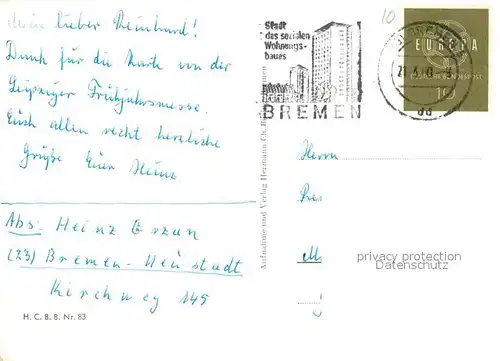 mein lieber Reinhard!
Dank für die Karte von der
Leipziger Frühjahrsmesse.
Euch allen recht herzliche
Grüße Euer Heinz
Abs: Heinz Erzan
(23) Bremen-Neustadt
Kirchweg 145
H. C. B. B. Nr. 83
Aufnahme und Verlag Hermann Ch.
10
Stadt
des sozialen
Wohnungs-
baues
BREMEN
EUROPA
BUNDESPOST
10
dd
Herrn
privacy protection
Datenschutz